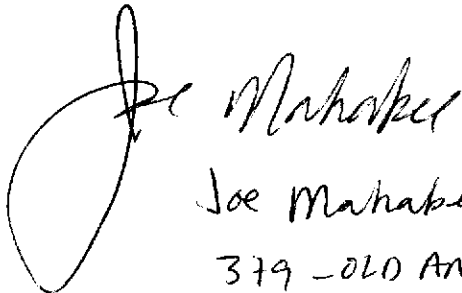 Joe Mahabee
Joe Mahabe
379 - OLD AN